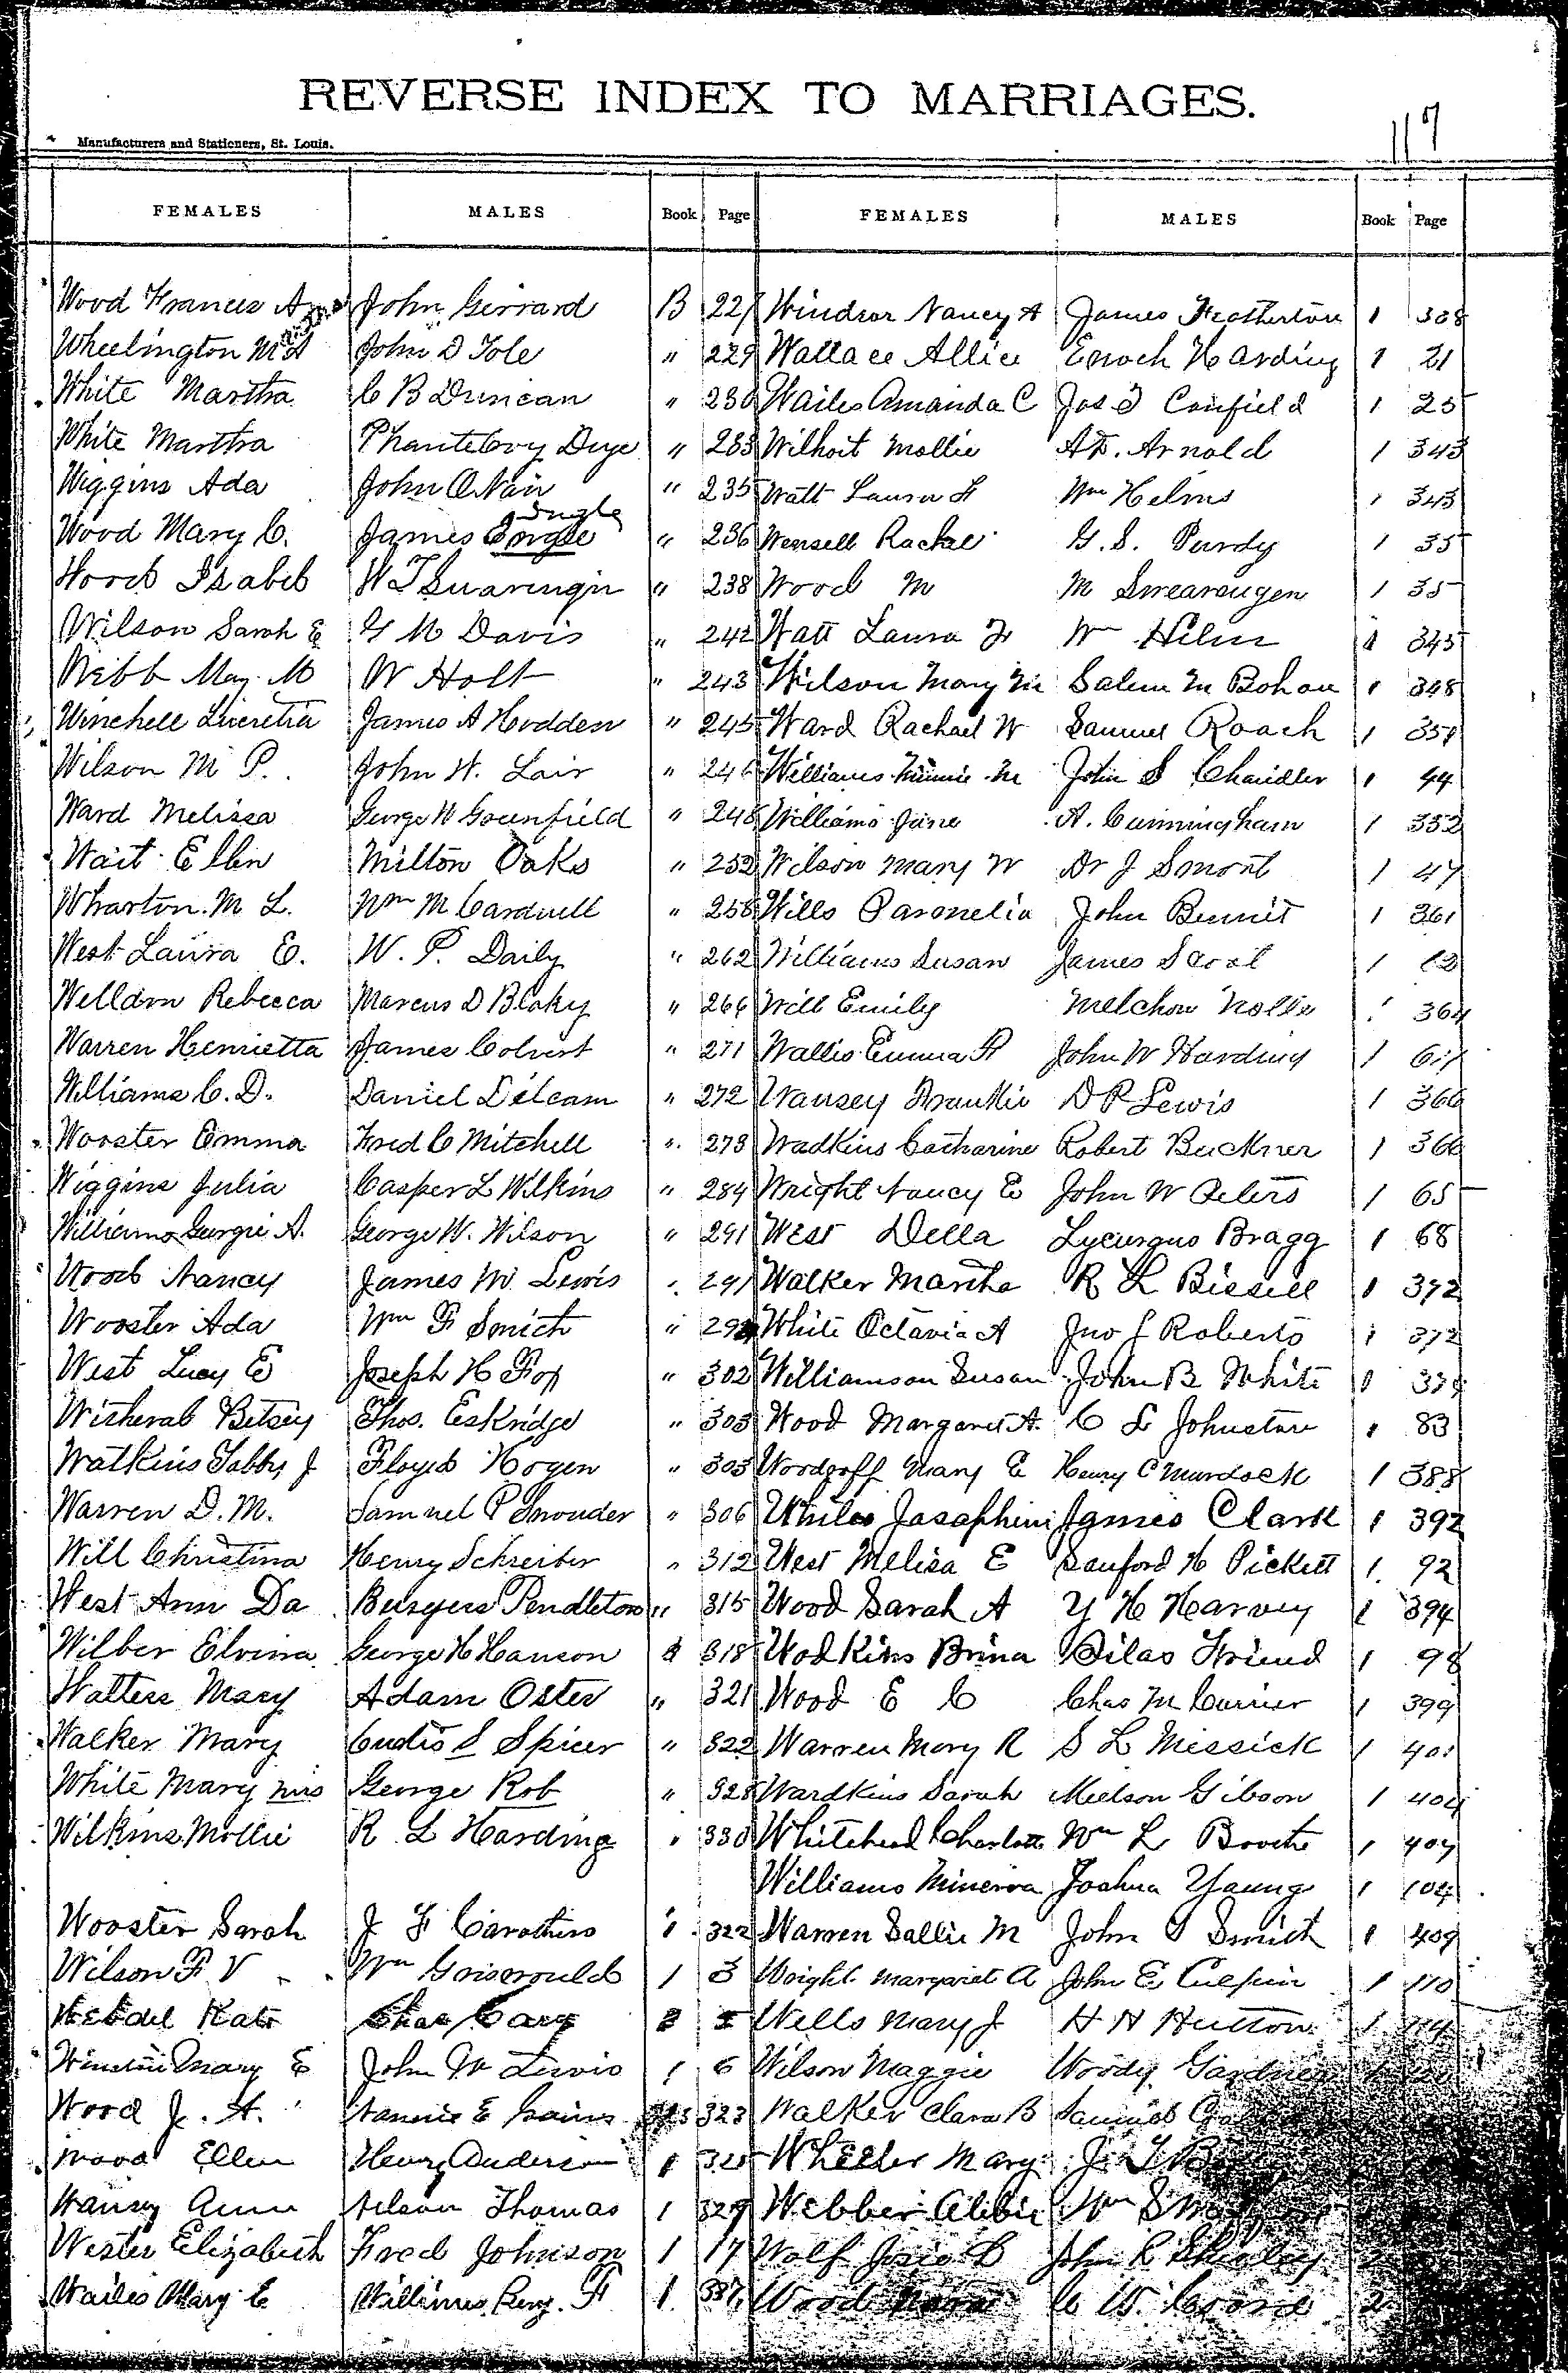 REVERSE INDEX TO MARRIAGES.
117
Manufacturers and Stationers, St. Louis.
FEMALES MALES Book Page FEMALES MALES Book Page
Wood Frances A John Gerrard B 227 Windsor Nancy A James Featherton 1 338
Wheelington M A John D Tole " 229 Wallace Allie Enoch Harding 1 21
White Martha C B Duncan " 230 Wailes Amanda C Jas Canfield 1 25
White Martha Dye " 233 Wilhoit Mollie Arnold 1 343
Wiggins Ada John " 235 Watt Laura F Wm Helms 1 343
Wood Mary C. James Engle Ingle " 236 Rachel G. S. Purdy 1 35
Wood Isabel W T " 238 Wood M M Swearengen 1 35
Wilson Sarah E G M Davis " 242 Watt Laura F Wm Hilm 1 345
Webb May M W Holt " 243 Wilson Mary M Salem M Bohon 1 348
Winchell Lucretia James A Hodden " 245 Ward Rachael W Samuel Roach 1 351
Wilson M P. John W. Lair " 246 Williams Minnie M John S Chandler 1 44
Ward Melissa George W Greenfield " 248 Williams Jane A. Cunningham 1 352
Wait Ellen Milton Oaks " 252 Wilson Mary W Dr J 1 47
Wharton M L. Wm M Cardwell " 258 Wills John 1 361
West Laura E. W. P. Daily " 262 Williams Susan James 1
Welldon Rebecca Marcus D Blaky " 266 Will Emily Melchow Nolte 1 364
Warren Henrietta James Colvert " 271 Wallis Emma A John W Harding 1
Williams C. D. Daniel Dileam " 272 Wansey Frankie D P Lewis 1 366
Wooster Emma Fred C Mitchell " 273 Wadkins Catharine Robert Buckner 1 366
Wiggins Julia Casper L Wilkins " 284 Wright Nancy E John W Peters 1 65
Williams Georgie A. George W. Wilson " 291 West Della Lycurgus Bragg 1 68
Wood Nancy James M Lewis " 291 Walker Martha R L Bissell 1 372
Wooster Ada Wm F Smith " White Octavia A Jno J Roberts 1 372
West Lucy E Joseph H Fox " 302 Williamson Susan John B White 1
Betsey Thos. Eskridge " 303 Wood Margaret A. C L Johnston 1 83
Watkins Tabby J Floyed Hogen " 303 Woodroff Mary E Henry C Murdock 1 388
Warren D. M. Samuel P Snouder " 306 Whiles Josaphine James Clark 1 392
Will Christina Henry Schreiber " 312 West Melisa E Sanford H Pickett 1. 92
West Ann Da Pendleton " 315 Wood Sarah A Y H Harvey 1 394
Wilber Elvina George H Hanson 318 Wodkins Brina Silas Friend 1 98
Walters Mary Adam Oster " 321 Wood E C Chas M Currier 1 399
Walker Mary Curtis S Spicer " 322 Warren Mary R S L Messick 1 401
White Mary mrs George Rob " 328 Wardkins Sarah Gibson 1 404
Wilkins Mollie R L Harding " 330 Whitehead Charlotte Wm L Boothe 1 407
Williams Minerva Joshua Young 1 104
Wooster Sarah J F Carothers 322 Warren Sallie M John Smith 1 409
Wilson F V Wm Griswould 1 3 Wright Margaret A John E 1 110
Kate Chas Cary Wells Mary J H H Hutton 1 114
Mary E John W Lewis 1 6 Wilson Maggie Woody Gardner
Wood J. A. Nannie E 323 Walker Clara B Samuel
Wood Ellen Henry Anderson 1 Wheeler Mary J.
Wansey Ann Nelson Thomas 1 329 Webber Wm
Wester Elizabeth Fred Johnson 1 17 Wolf Josie John R
Wailes Mary E Williams Benj. F 1. Wood